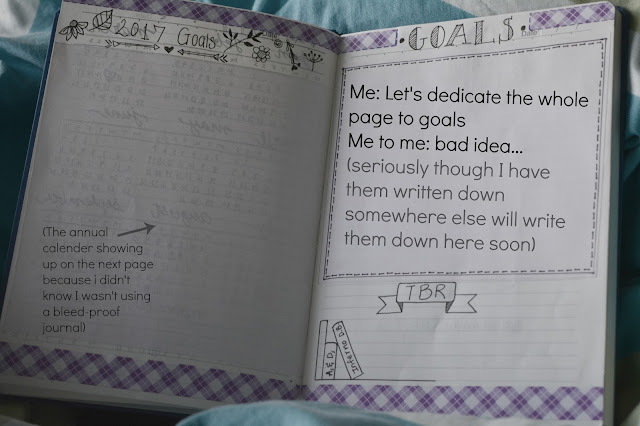 2017 Goals
(The annual
calender showing
up on the next page
because i didn't
know I wasn't using
a bleed-proof
journal)
GOALS
Me: Let's dedicate the whole
page to goals
Me to me: bad idea...
(seriously though I have
them written down
somewhere else will write
them down here soon)
TBR
A & D
Inferno D.B